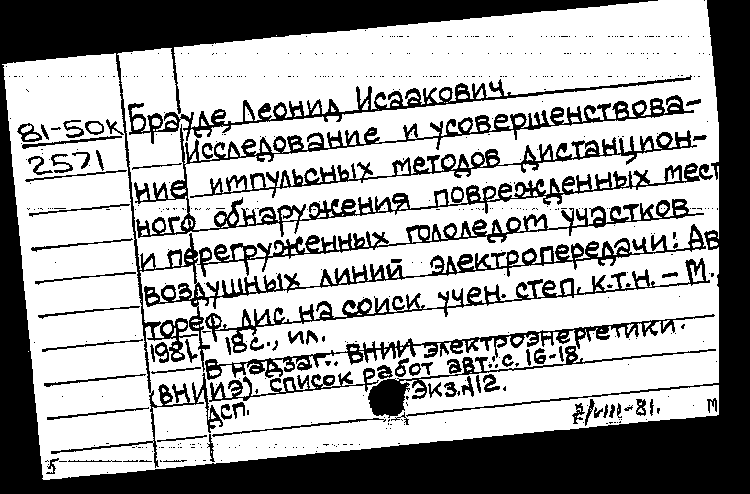 81-50к
2571
Брауде, Леонид Исаакович.
Исследование и усовершенствова-
ние импульсных методов дистанцион-
ного обнаружения поврежденных мест
и перегруженных гололедом участков
воздушных линий электропередачи: Ав
тореф. дис. на соиск. учен. степ. к.т.н. – М.,
1981. – 18с., ил.
В надзаг.: ВНИИ электроэнергетики.
(ВНИИЭ). Список работ авт.: с. 16-18.
Экз. №12.
Дсп.
/VIII-81.
М
5